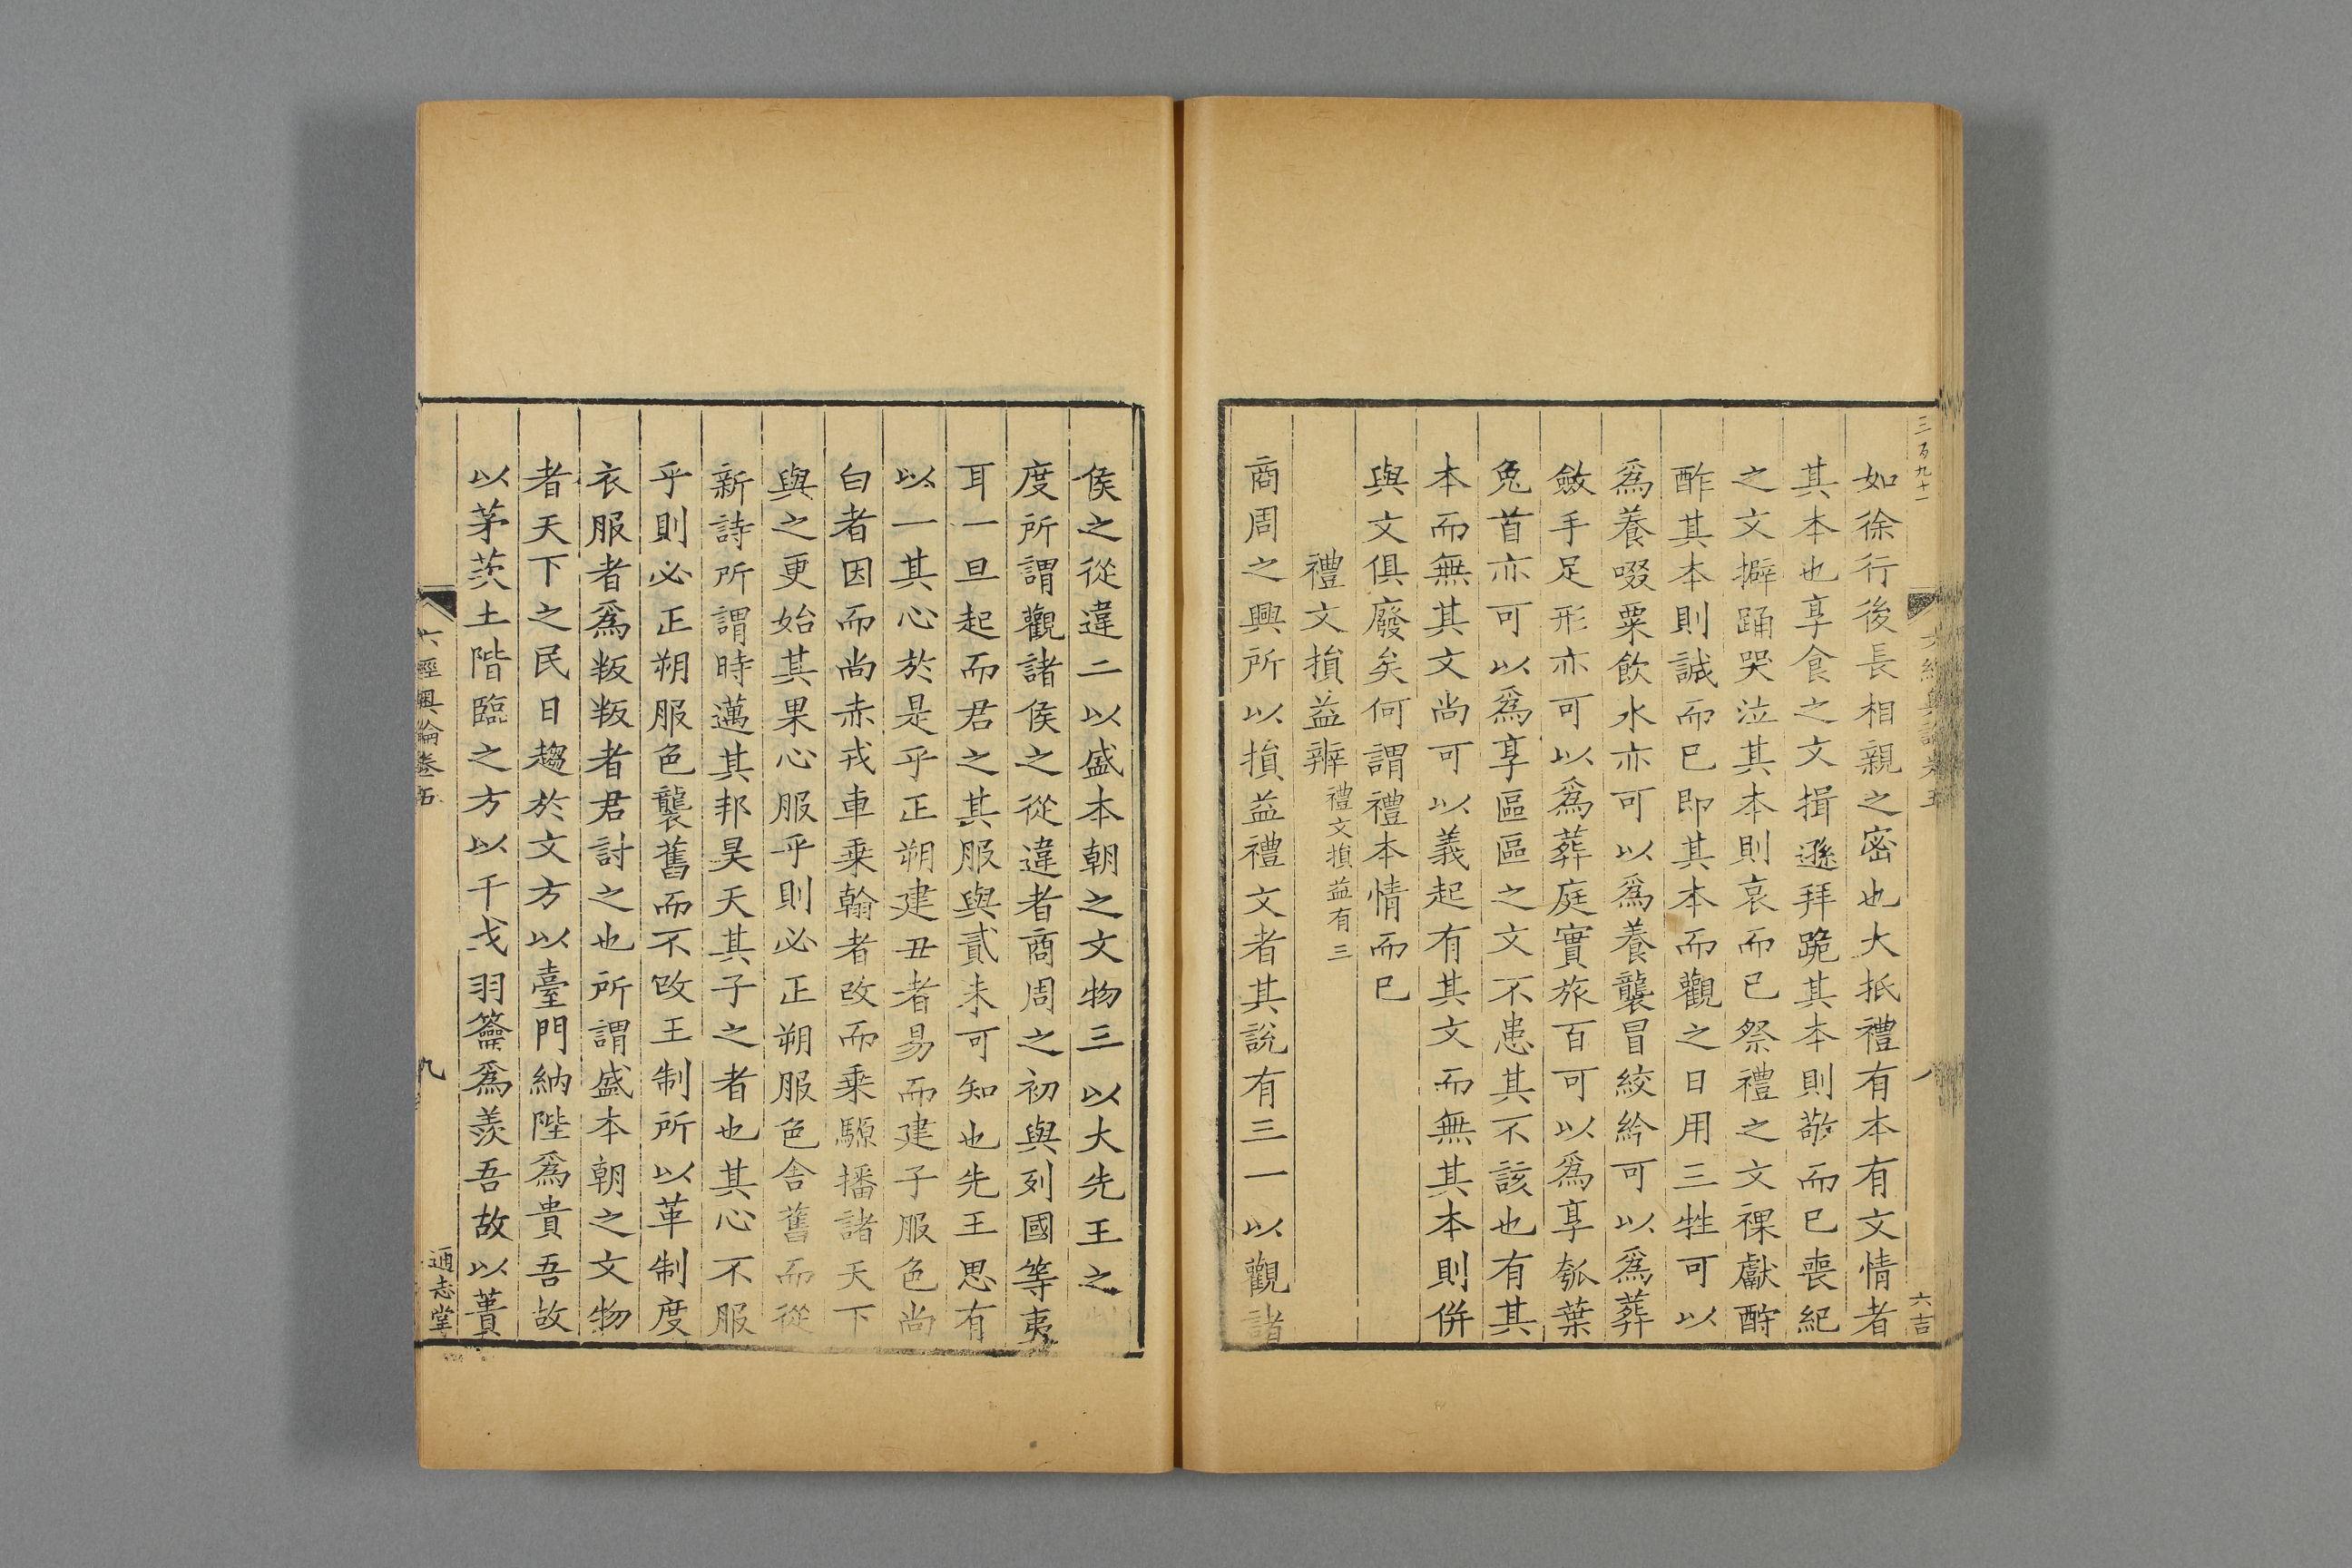 三百九十一
六經奧論卷五
八
六吉
如徐行後長相親之密也大抵禮有本有文情者
其本也享食之文揖遜拜跪其本則敬而已喪紀
之文擗踊哭泣其本則哀而已祭禮之文祼獻酬
酢其本則誠而已即其本而觀之日用三牲可以
爲養啜粟飲水亦可以爲養襲冒絞紟可以爲葬
斂手足形亦可以爲葬庭實旅百可以爲享瓠葉
兔首亦可以爲享區區之文不患其不該也有其
本而無其文尚可以義起有其文而無其本則併
與文俱廢矣何謂禮本情而已
禮文損益辨禮文損益有三
商周之興所以損益禮文者其說有三一以觀諸
侯之從違二以盛本朝之文物三以大先王之
度所謂觀諸侯之從違者商周之初與列國等夷
耳一旦起而君之其服與貳未可知也先王思有
以一其心於是乎正朔建丑者易而建子服色尚
白者因而尚赤戎車乘翰者改而乘騵播諸天下
與之更始其果心服乎則必正朔服色舍舊而從
新詩所謂時邁其邦昊天其子之者也其心不服
乎則必正朔服色襲舊而不改王制所以革制度
衣服者爲叛叛者君討之也所謂盛本朝之文物
者天下之民日趨於文方以臺門納陛爲貴吾故
以茅茨土階臨之方以干戈羽籥爲羨吾故以蕢
六經奧論卷五
九
通志堂